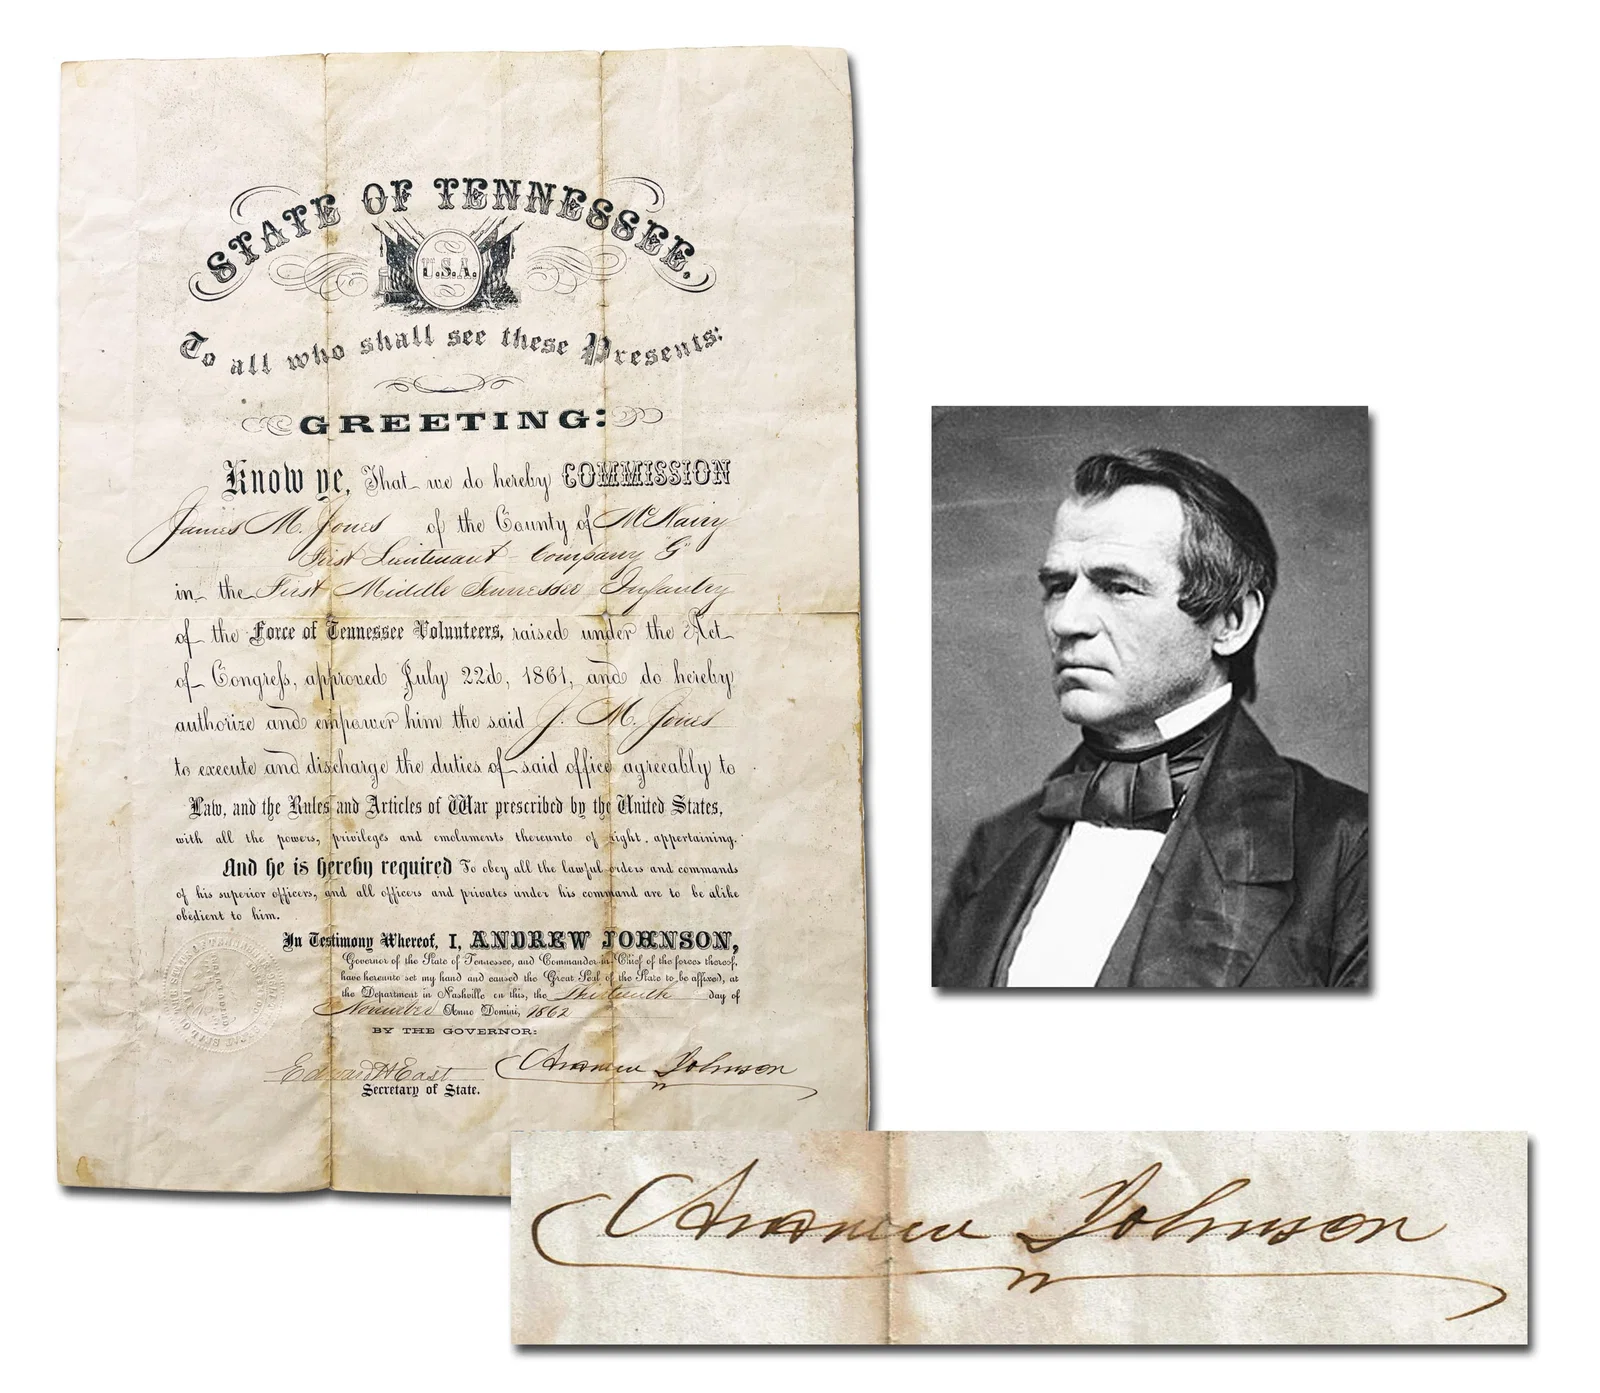 STATE OF TENNESSEE.
U.S.A.
To all who shall see these Presents:
GREETING:
Know ye, That we do hereby COMMISSION
James M. Jones of the County of McNairy
First Lieutenant - Company "G"
in the First Middle Tennessee Infantry
of the Force of Tennessee Volunteers, raised under the Act
of Congress, approved July 22d, 1861, and do hereby
authorize and empower him the said J. M. Jones
to execute and discharge the duties of said office agreeably to
Law, and the Rules and Articles of War prescribed by the United States,
with all the powers, privileges and emoluments thereunto of right appertaining.
And he is hereby required To obey all the lawful orders and commands
of his superior officers, and all officers and privates under his command are to be alike
obedient to him.
In Testimony Whereof, I, ANDREW JOHNSON,
Governor of the State of Tennessee, and Commander-in-Chief of the forces thereof,
have hereunto set my hand and caused the Great Seal of the State to be affixed, at
the Department in Nashville on this, the Thirteenth day of
November Anno Domini, 1862
BY THE GOVERNOR:
Edward H East
Andrew Johnson
Secretary of State.
Andrew Johnson